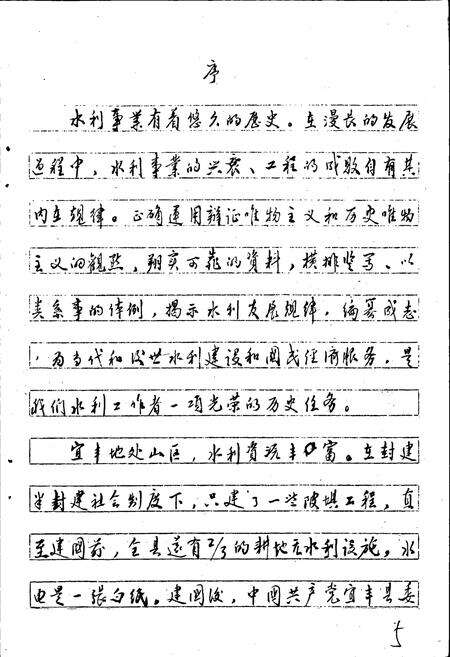 序
水利事業有着悠久的歷史。在漫長的发展
过程中，水利事業的兴衰、工程的成败自有其
内在規律。正确運用辩证唯物主义和历史唯物
主义的観點，翔实可靠的資料，横排竖写、以
类系事的体例，揭示水利发展規律，编纂成志
，为当代和后世水利建设和國民经济服务，是
我们水利工作者一項光荣的历史任务。
宜丰地处山区，水利資沅丰富。在封建
半封建社会制度下，只建了一些陂堤工程，直
至建國前，全县还有2/3的耕地无水利设施。水
电是一張白纸。建國後，中國共产党宜丰县委
5